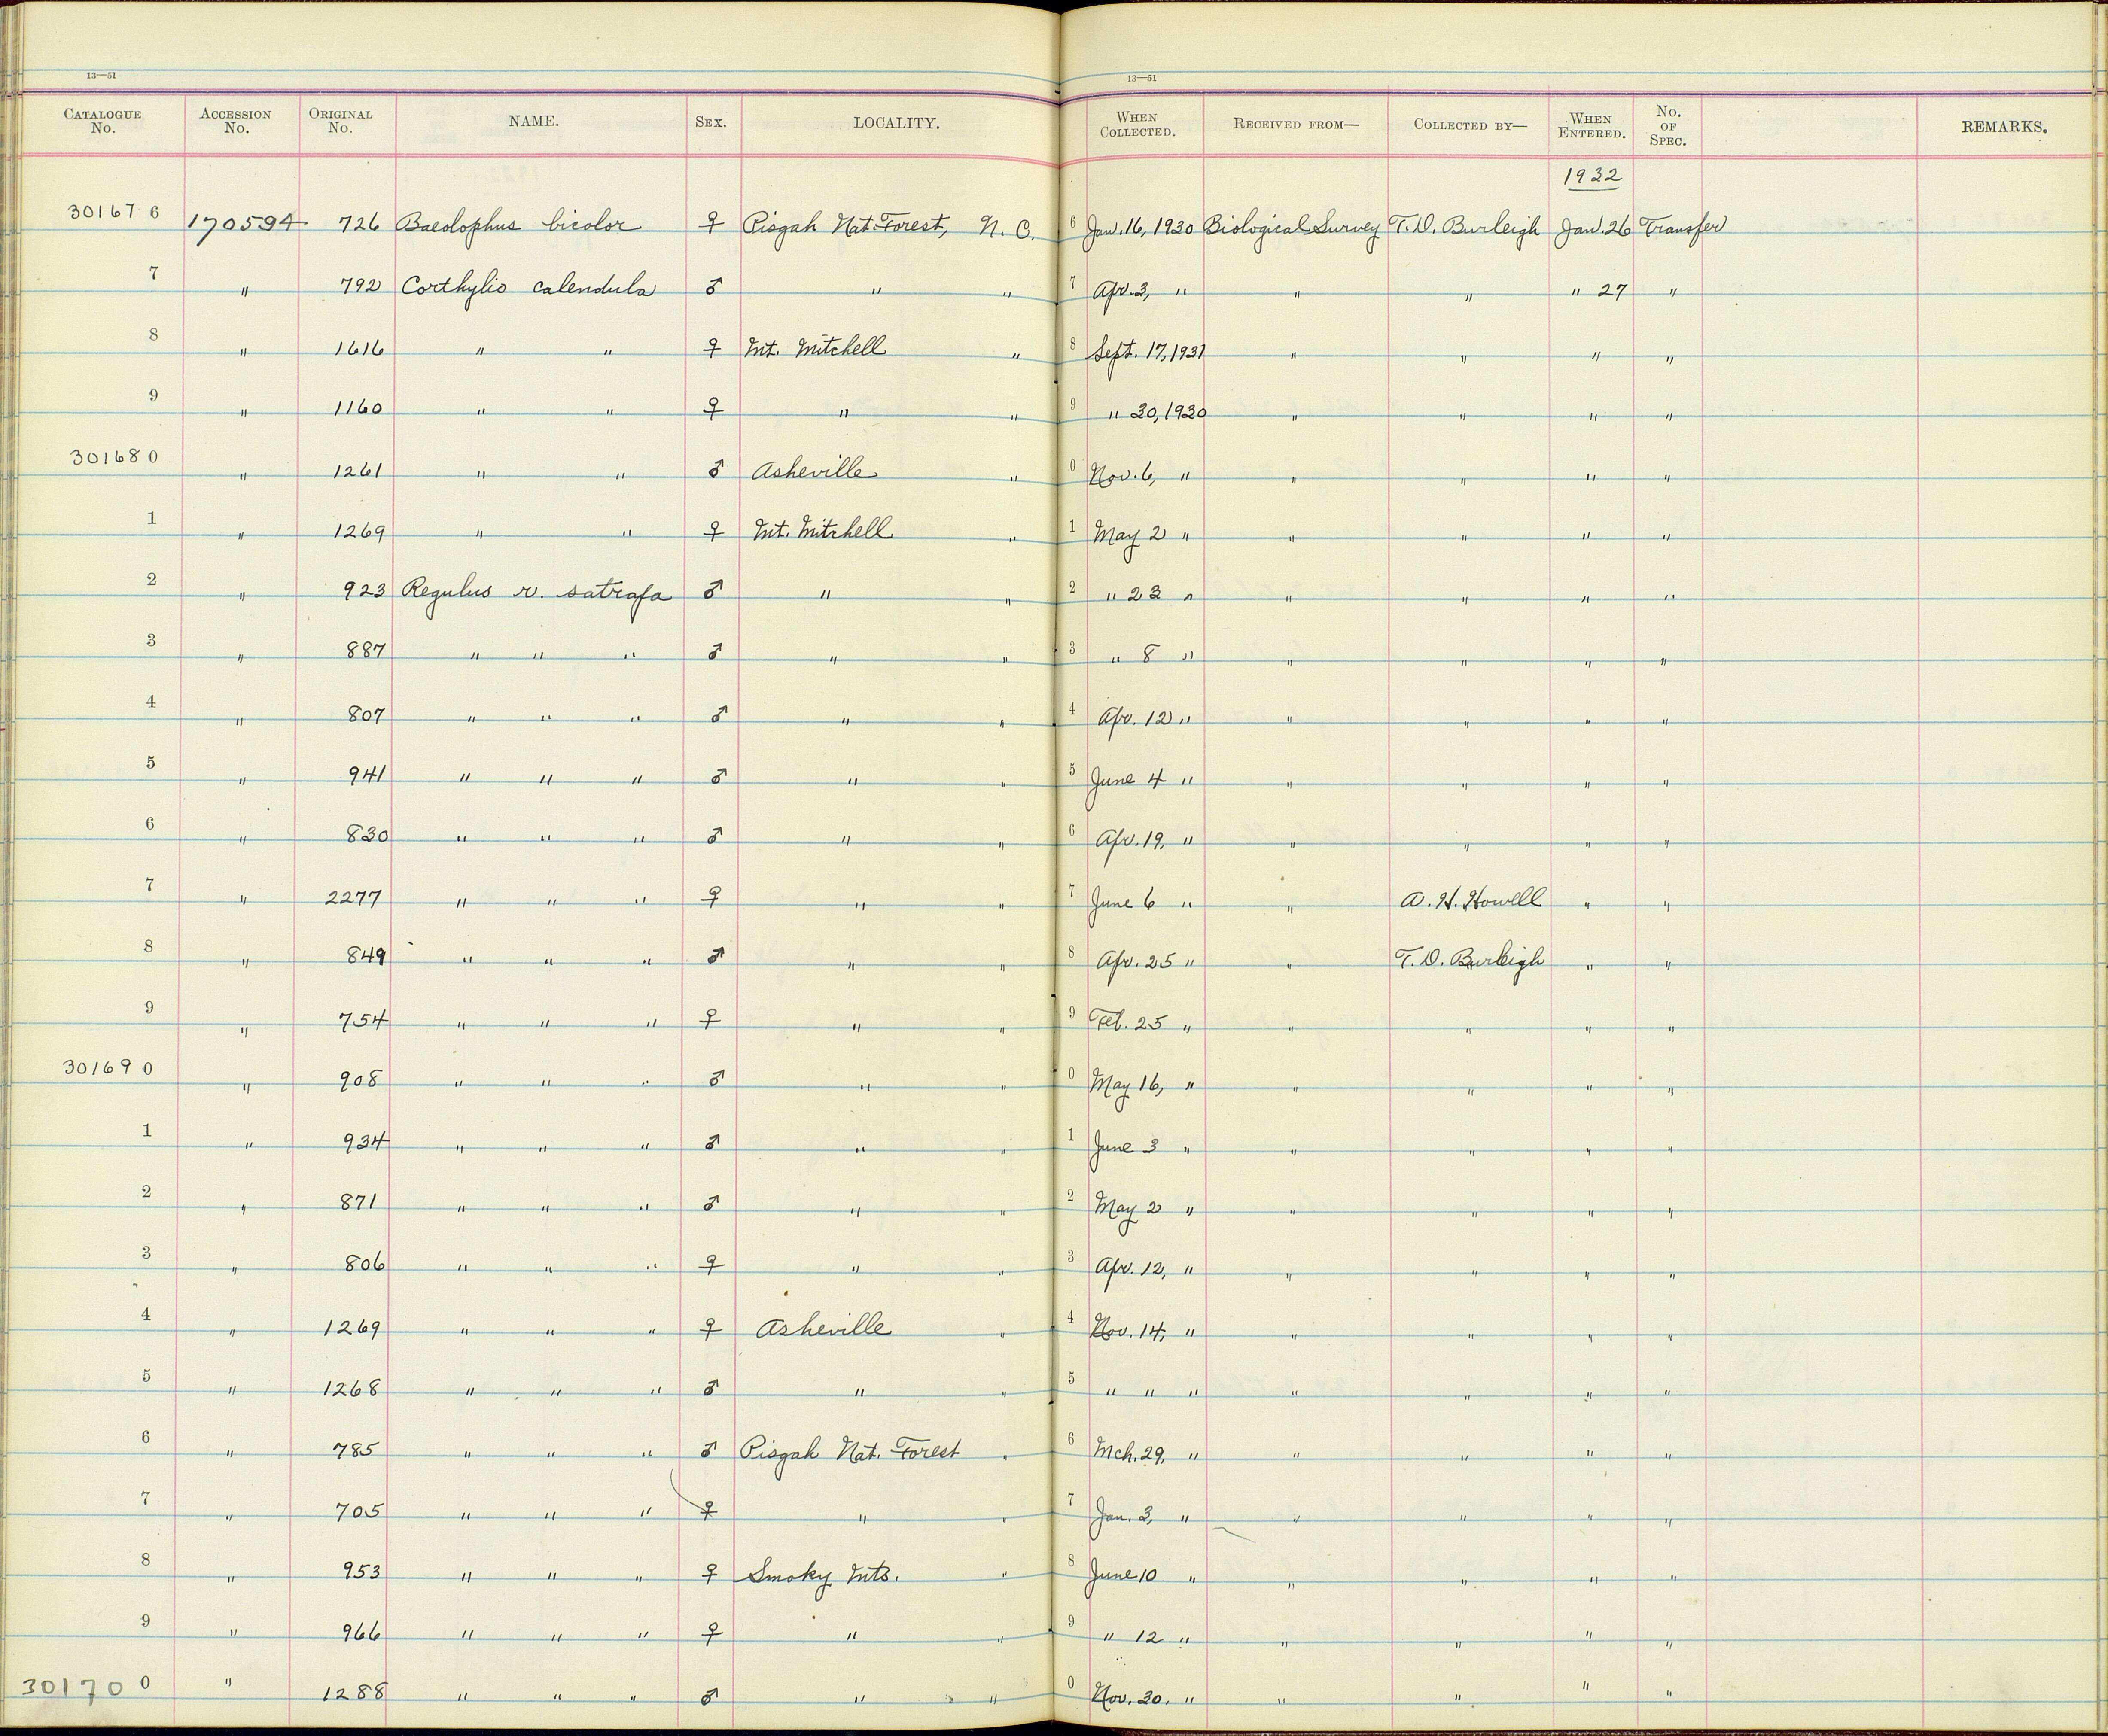 13—51
13—51
CATALOGUE No. ACCESSION No. ORIGINAL No. NAME. SEX. LOCALITY. WHEN COLLECTED. RECEIVED FROM— COLLECTED BY— WHEN ENTERED. No. OF SPEC. REMARKS.
1932
301676 170594 726 Baeolophus bicolor ♀ Pisgah Nat. Forest, N. C. 6 Jan. 16, 1930 Biological Survey T. D. Burleigh Jan. 26 Transfer
7 " 792 Corthylio calendula ♂ " " 7 Apr. 3, " " " " 27 "
8 " 1616 " " ♀ Mt. Mitchell " 8 Sept. 17, 1931 " " " "
9 " 1160 " " ♀ " " 9 " 30, 1930 " " " "
301680 " 1261 " " ♂ Asheville " 0 Nov. 6, " " " " "
1 " 1269 " " ♀ Mt. Mitchell " 1 May 2 " " " " "
2 " 923 Regulus r. satrapa ♂ " " 2 " 23 " " " " "
3 " 887 " " " ♂ " " 3 " 8 " " " " "
4 " 807 " " " ♂ " " 4 Apr. 12 " " " " "
5 " 941 " " " ♂ " " 5 June 4 " " " " "
6 " 830 " " " ♂ " " 6 Apr. 19, " " " " "
7 " 2277 " " " ♀ " " 7 June 6 " " A. H. Howell " "
8 " 849 " " " ♂ " " 8 Apr. 25 " " T. D. Burleigh " "
9 " 754 " " " ♀ " " 9 Feb. 25 " " " " "
301690 " 908 " " " ♂ " " 0 May 16, " " " " "
1 " 934 " " " ♂ " " 1 June 3 " " " " "
2 " 871 " " " ♂ " " 2 May 2 " " " " "
3 " 806 " " " ♀ " " 3 Apr. 12, " " " " "
4 " 1269 " " " ♀ Asheville " 4 Nov. 14, " " " " "
5 " 1268 " " " ♂ " " 5 " " " " " " "
6 " 785 " " " ♂ Pisgah Nat. Forest " 6 Mch. 29, " " " " "
7 " 705 " " " ♀ " " 7 Jan. 3, " " " " "
8 " 953 " " " ♀ Smoky Mts. " 8 June 10 " " " " "
9 " 966 " " " ♀ " " 9 " 12 " " " " "
301700 " 1288 " " " ♂ " " 0 Nov. 30. " " " " "